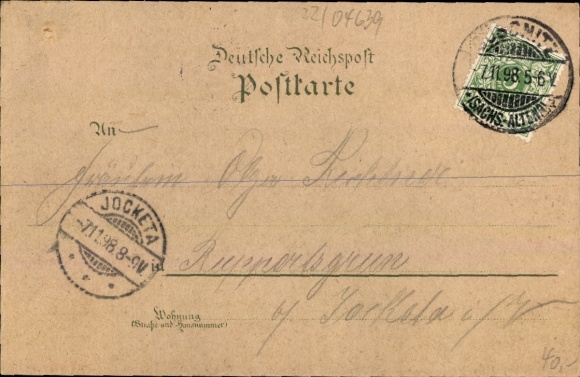 22/04639
Deutsche Reichspost
Postkarte
7.11.98.5-6N
(SACHS-ALTENB.)
An
Fräulein Olga
JOCKETA
-7.11.98.8-9V.
Ruppertsgrün
Wohnung
(Straße und Hausnummer)
b/ Jocketa i/V
40,-